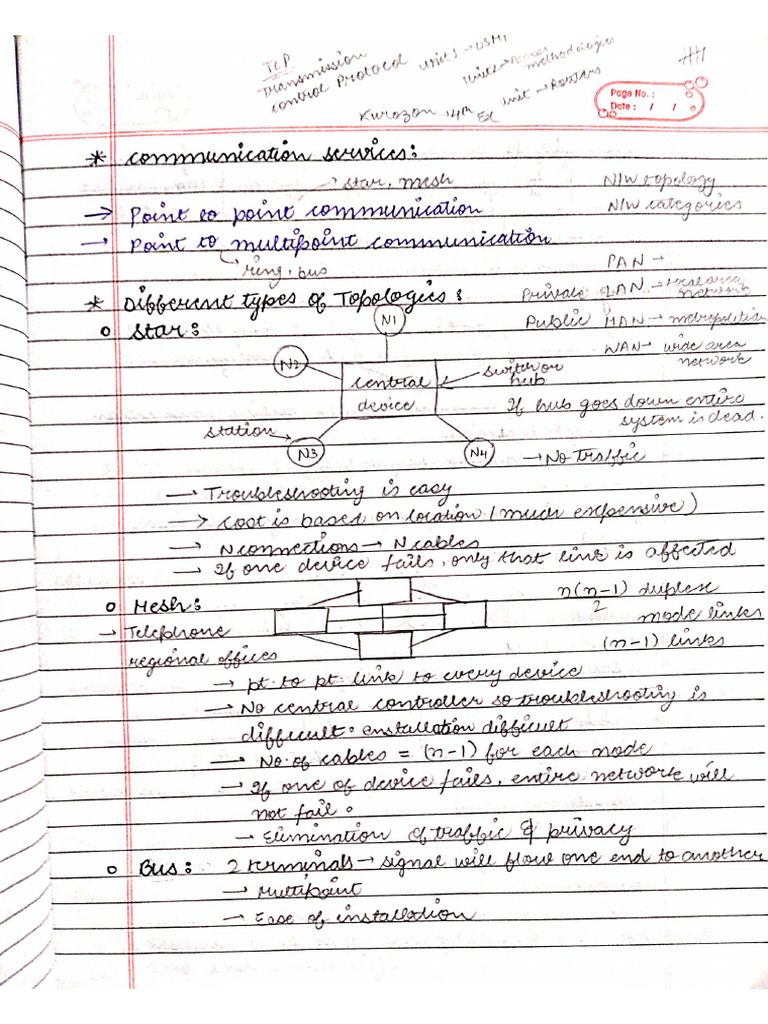 TCP
Transmission
control Protocol
unit 1 → OSM,
Unit 2 → Access
methodologies
unit → Routers
Kurozon → 4th Ed
Page No. :
Date : / /
* communication services:
→ star, mesh
N/W topology
→ Point to point communication
N/W categories
→ Point to multipoint communication
→ ring, bus
PAN →
* Different types of Topologies :
Private LAN → local area
network
o star:
N1
Public MAN → metropolitan
WAN → wide area
network
N2
central
device
switch or
hub
If hub goes down entire
system is dead.
station
N3
N4
→ No traffic
→ Troubleshooting is easy
→ cost is based on location (much expensive)
→ N connections → N cables
→ If one device fails, only that link is affected
o Mesh:
n(n-1) duplex
2 mode links
→ Telephone
regional offices
(n-1) links
→ pt. to pt. link to every device
→ No central controller so troubleshooting is
difficult. installation difficult
→ No. of cables = (n-1) for each node
→ If one of device fails, entire network will
not fail.
→ Elimination of traffic & privacy
o Bus: 2 terminals → signal will flow one end to another
→ Multipoint
→ Ease of installation